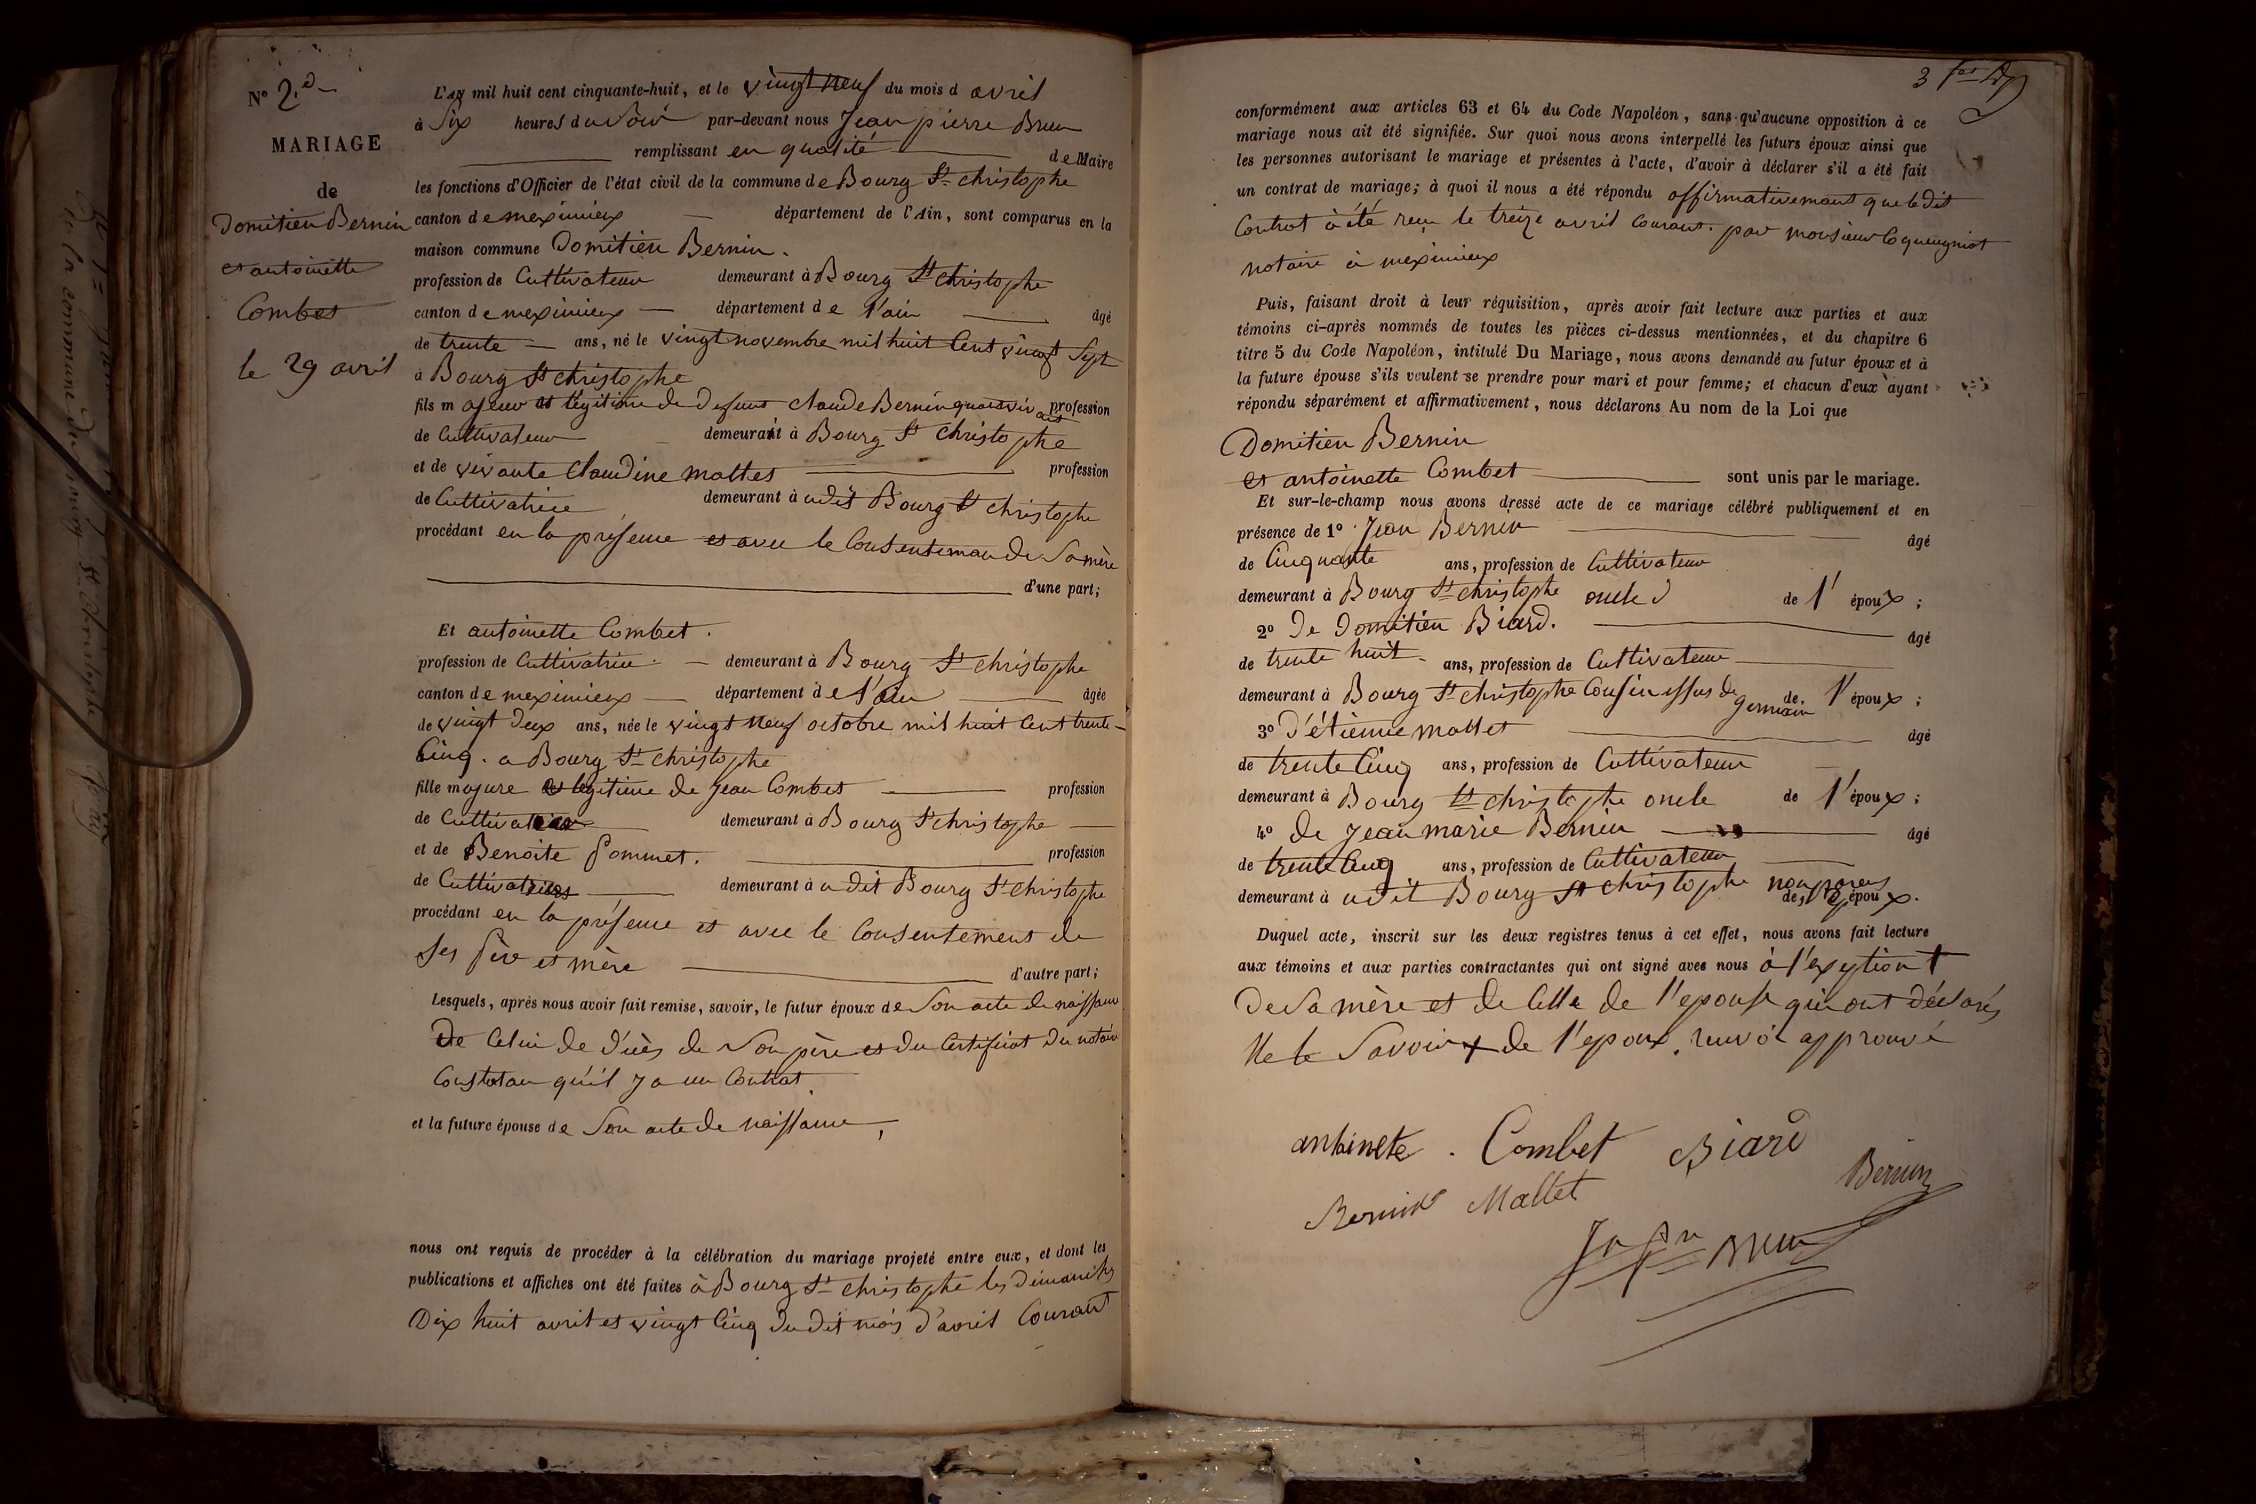 N° 2.d
MARIAGE
de
Domitien Bernin
et antoinette
Combet
le 29 avril
L'an mil huit cent cinquante-huit, et le vingt neuf du mois d avril
à Six heures du Soir par-devant nous Jean pierre Brun
remplissant en qualité de Maire
les fonctions d'Officier de l'état civil de la commune de Bourg St christophe
canton de meximieux département de l'Ain, sont comparus en la
maison commune Domitien Bernin.
profession de Cultivateur demeurant à Bourg St christophe
canton de meximieux département de l'ain âgé
de trente ans, né le vingt novembre mil huit Cent vingt Sept
à Bourg St christophe
fils majeur et légitime de defunt claude Bernin quant vivant profession
de Cultivateur demeurait à Bourg St christophe
et de vivante Claudine mattet profession
de Cultivatrice demeurant à udit Bourg St christophe
procédant en la présence et avec le Consentement de Sa mère
d'une part;
Et antoinette Combet.
profession de Cultivatrice demeurant à Bourg St christophe
canton de meximieux département de l'ain âgée
de vingt deux ans, née le vingt neuf octobre mil huit Cent trente-
Cinq. a Bourg St christophe
fille majure et légitime de Jean Combet profession
de Cultivateur demeurant à Bourg St christophe
et de Benoite Pommet. profession
de Cultivatrice demeurant à udit Bourg St christophe
procédant en la présence et avec le Consentement de
Ses Père et mère d'autre part;
Lesquels, après nous avoir fait remise, savoir, le futur époux de Son acte de naissance
De Celui de décès de Son père et du Certificat du notaire
Constatant qu'il y a un Contrat.
et la future épouse de Son acte de naissance,
nous ont requis de procéder à la célébration du mariage projeté entre eux, et dont les
publications et affiches ont été faites à Bourg St christophe les dimanches
Dix huit avril et vingt Cinq du dit mois d'avril Courant
3
conformément aux articles 63 et 64 du Code Napoléon, sans qu'aucune opposition à ce
mariage nous ait été signifiée. Sur quoi nous avons interpellé les futurs époux ainsi que
les personnes autorisant le mariage et présentes à l'acte, d'avoir à déclarer s'il a été fait
un contrat de mariage; à quoi il nous a été répondu affirmativement que le dit
Contrat à été reçu le treize avril Courant. par monsieur Coqueugniot
notaire à meximieux
Puis, faisant droit à leur réquisition, après avoir fait lecture aux parties et aux
témoins ci-après nommés de toutes les pièces ci-dessus mentionnées, et du chapitre 6
titre 5 du Code Napoléon, intitulé Du Mariage, nous avons demandé au futur époux et à
la future épouse s'ils veulent se prendre pour mari et pour femme; et chacun d'eux ayant
répondu séparément et affirmativement, nous déclarons Au nom de la Loi que
Domitien Bernin
et antoinette Combet sont unis par le mariage.
Et sur-le-champ nous avons dressé acte de ce mariage célébré publiquement et en
présence de 1° Jean Bernin âgé
de Cinquante ans, profession de Cultivateur
demeurant à Bourg St christophe oncle de l'époux;
2° De Domitien Biard. âgé
de trente huit ans, profession de Cultivateur
demeurant à Bourg St christophe Cousin issus de germain de l'époux;
3° D'étienne mattet âgé
de trente Cinq ans, profession de Cultivateur
demeurant à Bourg St christophe oncle de l'époux;
4° de Jean marie Bernin âgé
de trente Cinq ans, profession de Cultivateur
demeurant à udit Bourg St christophe non parent des époux.
Duquel acte, inscrit sur les deux registres tenus à cet effet, nous avons fait lecture
aux témoins et aux parties contractantes qui ont signé avec nous à l'exeption +
De Sa mère et de Celle de l'epouse qui ont déclarés
Ne le Savoir + de l'epoux. renvoi approuvé
antoinete. Combet Biard
Bernin Mallet Bernin
Jn Prre Brun